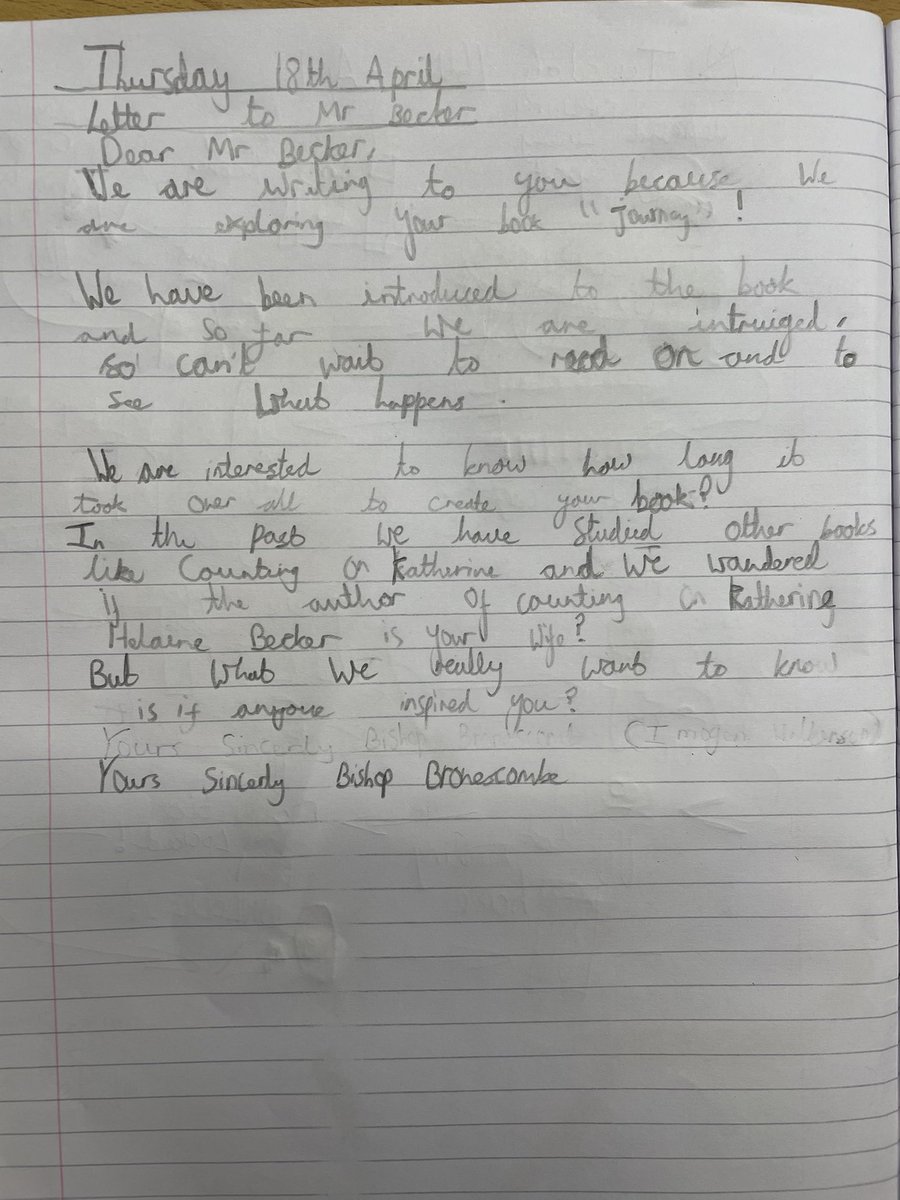 Thursday 18th April
Letter to Mr Becker
Dear Mr Becker,
We are writing to you because We
are exploring your book "Journey"!
We have been introduced to the book
and so far we are intruiged,
so can't wait to read on and to
see what happens.
We are interested to know how long it
took over all to create your book?
In the past we have studied other books
like Counting on Katherine and we wandered
if the author of counting on Kathering
Helaine Becker is your wife?
But what we really want to know
is if anyone inspired you?
Yours Sincerly Bishop (Imogen
Yours Sincerly Bishop Bronescombe